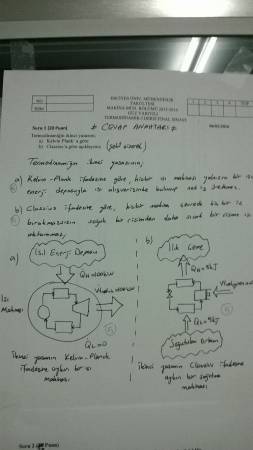 ERCİYES ÜNİ. MÜHENDİSLİK
FAKÜLTESİ
MAKİNA MÜH. BÖLÜMÜ 2015-2016
GÜZ YARIYILI
TERMODİNAMİK I DERSİ FİNAL SINAVI
1 2 3 4 TOP
Soru 1 (20 Puan) * CEVAP ANAHTARI *
Termodinamiğin ikinci yasasını;
a) Kelvin Planck'a göre
b) Clausius'a göre açıklayınız. (şekil çizerek)
Termodinamiğin ikinci yasasının;
a) Kelvin-Plank ifadesine göre, hiçbir ısı makinası yalnızca bir ısıl
enerji deposuyla ısı alışverişinde bulunup net iş üretemez.
b) Clausius ifadesine göre, hiçbir makina çevrede hiçbir iz
bırakmaksızın soğuk bir cisimden daha sıcak bir cisme ısı
aktaramaz.
a) Isıl Enerji Deposu
QH=100kW
Isı
Makinası
QL=0
İkinci yasanın Kelvin-Planck
ifadesine aykırı bir ısı
makinası
b) Ilık Çevre
QH=5kJ
QL=5kJ
Soğutulan ortam
İkinci yasanın Clausius ifadesine
aykırı bir soğutma
makinası